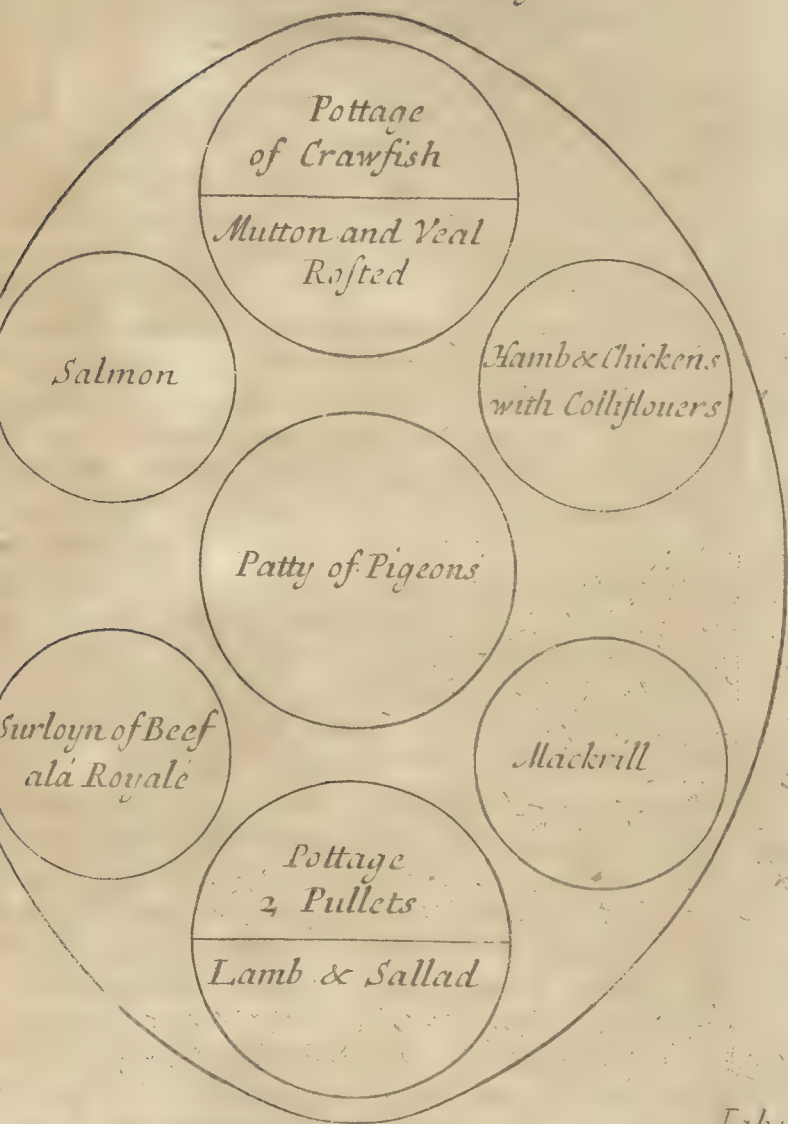 Pottage
of Crawfish
Mutton and Veal
Roſted
Salmon
Hamb & Chickens
with Colliflouers
Patty of Pigeons
Surloyn of Beef
alá Royale
Mackrill
Pottage
2 Pullets
Lamb & Sallad